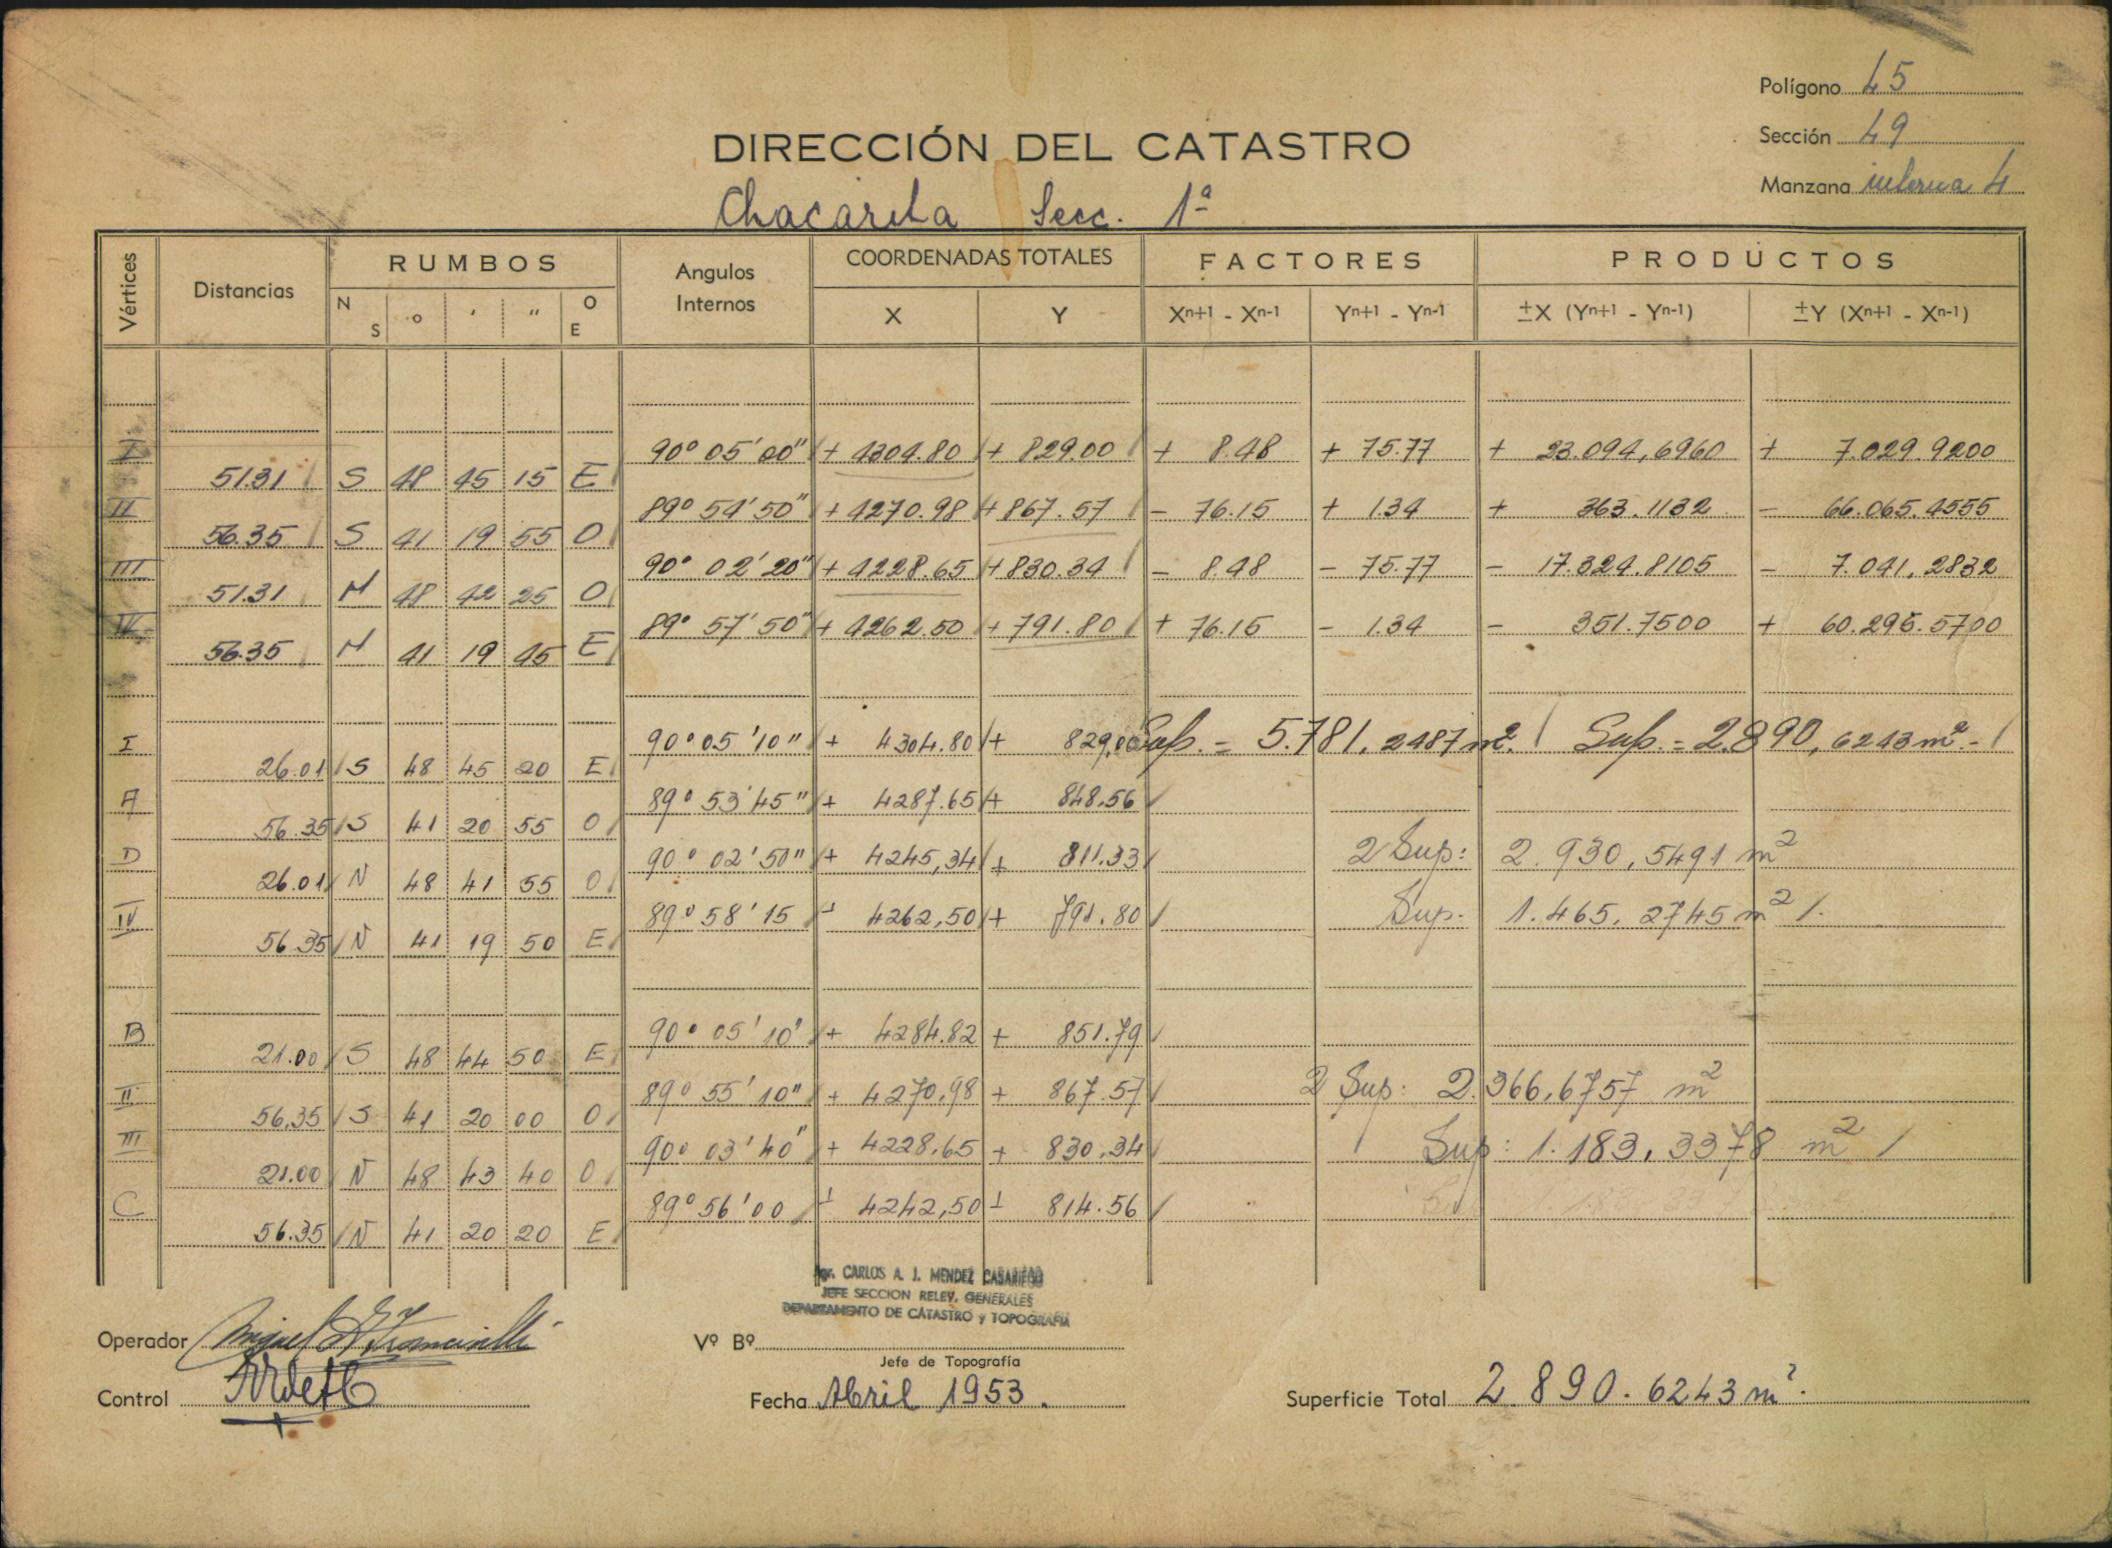 Polígono 45
Sección 49
Manzana interna 4
DIRECCIÓN DEL CATASTRO
Chacarita Secc. 1ª
Vértices Distancias RUMBOS Angulos Internos COORDENADAS TOTALES FACTORES PRODUCTOS
N S ° ' " O E X Y Xn+1 - Xn-1 Yn+1 - Yn-1 ±X (Yn+1 - Yn-1) ±Y (Xn+1 - Xn-1)
I 90° 05' 00" + 4304.80 + 829.00 + 8.48 + 75.77 + 23.094,6960 + 7.029.9200
51.31 S 48 45 15 E
II 89° 54' 50" + 4270.98 + 867.57 - 76.15 + 1.34 + 363.1132 - 66.065.4555
56.35 S 41 19 55 O
III 90° 02' 20" + 4228.65 + 830.34 - 8.48 - 75.77 - 17.324.8105 - 7.041.2832
51.31 N 48 42 25 O
IV 89° 57' 50" + 4262.50 + 791.80 + 76.15 - 1.34 - 351.7500 + 60.295.5700
56.35 N 41 19 45 E
I 90° 05' 10" + 4304.80 + 829,00 Sup. = 5.781,2487 m². Sup. = 2.890,6243 m².-
26.01 S 48 45 20 E
A 89° 53' 45" + 4287.65 + 848.56
56.35 S 41 20 55 O
D 90° 02' 50" + 4245,34 + 811.33 2 Sup: 2.930,5491 m²
26.01 N 48 41 55 O
IV 89° 58' 15 + 4262,50 + 791.80 Sup. 1.465.2745 m²
56.35 N 41 19 50 E
B 90° 05' 10" + 4284.82 + 851.79
21.00 S 48 44 50 E
II 89° 55' 10" + 4270,98 + 867.57 2 Sup: 2.366,6757 m²
56,35 S 41 20 00 O
III 90° 03' 40" + 4228,65 + 830,34 Sup: 1.183,3378 m²
21.00 N 48 43 40 O
C 89° 56' 00 + 4242,50 + 814.56
56.35 N 41 20 20 E
Agr. CARLOS A. J. MENDEZ CASARIEGO
JEFE SECCION RELEV. GENERALES
DEPARTAMENTO DE CATASTRO y TOPOGRAFIA
Operador Miguel
Vº Bº
Jefe de Topografía
Control
Fecha Abril 1953.
Superficie Total 2.890.6243 m².